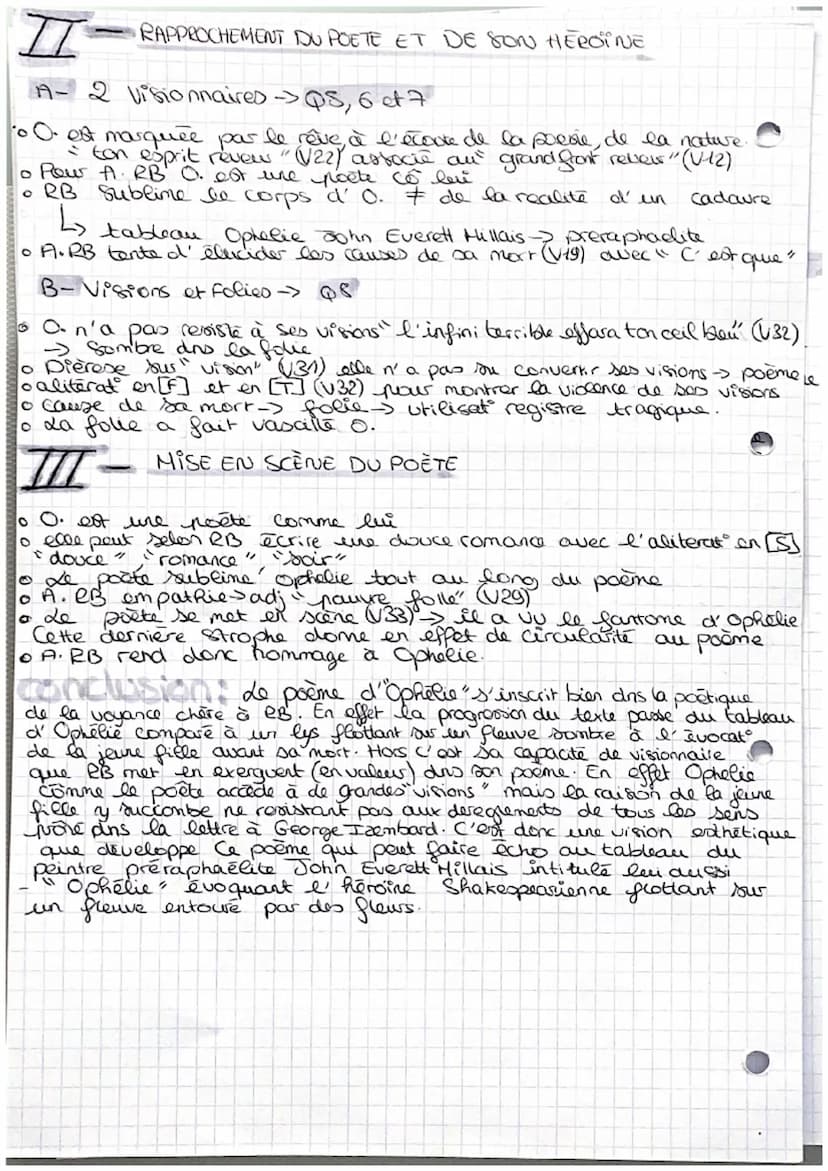 II - RAPPROCHEMENT DU POETE ET DE SON HÉROÏNE
A- 2 Visionnaires -> Q5, 6 et 7
o O. est marquée par le rêve, à l'écoute de la poesie, de la nature.
"ton esprit rêveur" (V22) associé au "grand front rêveur" (V12)
o Pour A. RB O. est une poète cô lui
o RB Sublime le corps d'O. ≠ de la réalité d'un cadavre
↳ tableau Ophelie John Everett Millais -> preraphaelite
o A. RB tente d'élucider les causes de sa mort (V19) avec "C'est que"
B- Visions et folies -> Q8
o O. n'a pas resisté à ses visions "l'infini terrible effara ton œil bleu" (V32)
-> Sombre dns la folie
o Dièrèse sur "vision" (V31) elle n'a pas su convertir ses visions -> poème
o alitérat° en [F] et en [T] (V32) pour montrer la violence de ses visions
o cause de sa mort -> folie -> utilisat° registre tragique.
o La folie a fait vascillé O.
III - MISE EN SCÈNE DU POÈTE
o O. est une poète comme lui
o elle peut selon RB écrire une douce romance avec l'aliterat° en [S]
"douce", "romance" "soir"
o Le poète sublime Ophelie tout au long du poème
o A. RB empathie -> adj "pauvre folle" (V29)
o Le poète se met en scène (V33) -> il a vu le fantome d'Ophelie
Cette dernière strophe donne en effet de circularité au poème
o A. RB rend donc hommage à Ophelie.
conclusion: Le poème d'"Ophélie" s'inscrit bien dns la poétique
de la voyance chère à RB. En effet la progression du texte passe du tableau
d'Ophélie comparé à un lys flottant sur un fleuve sombre à l'évocat°
de la jeune fille avant sa mort. Hors c'est sa capacité de visionnaire
que RB met en exerguent (en valeur) dns son poème. En effet Ophelie
comme le poète accède à de grandes "visions" mais la raison de la jeune
fille y succombe ne resistant pas aux dereglements de tous les sens
dns la lettre à George Izembard. C'est donc une vision esthétique
que développe ce poème qui peut faire écho au tableau du
peintre préraphaëlite John Everett Millais intitulé lui aussi
- "Ophélie" évoquant l'héroïne Shakespearienne flottant sur
un fleuve entouré par des fleurs.